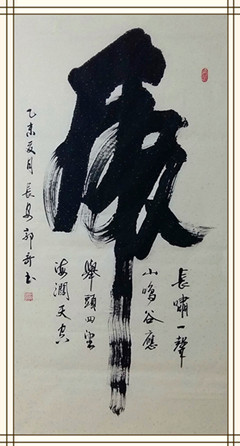 虎
長嘯一聲
山鳴谷應
舉頭四望
海闊天空
乙未夏月長安郭奇书